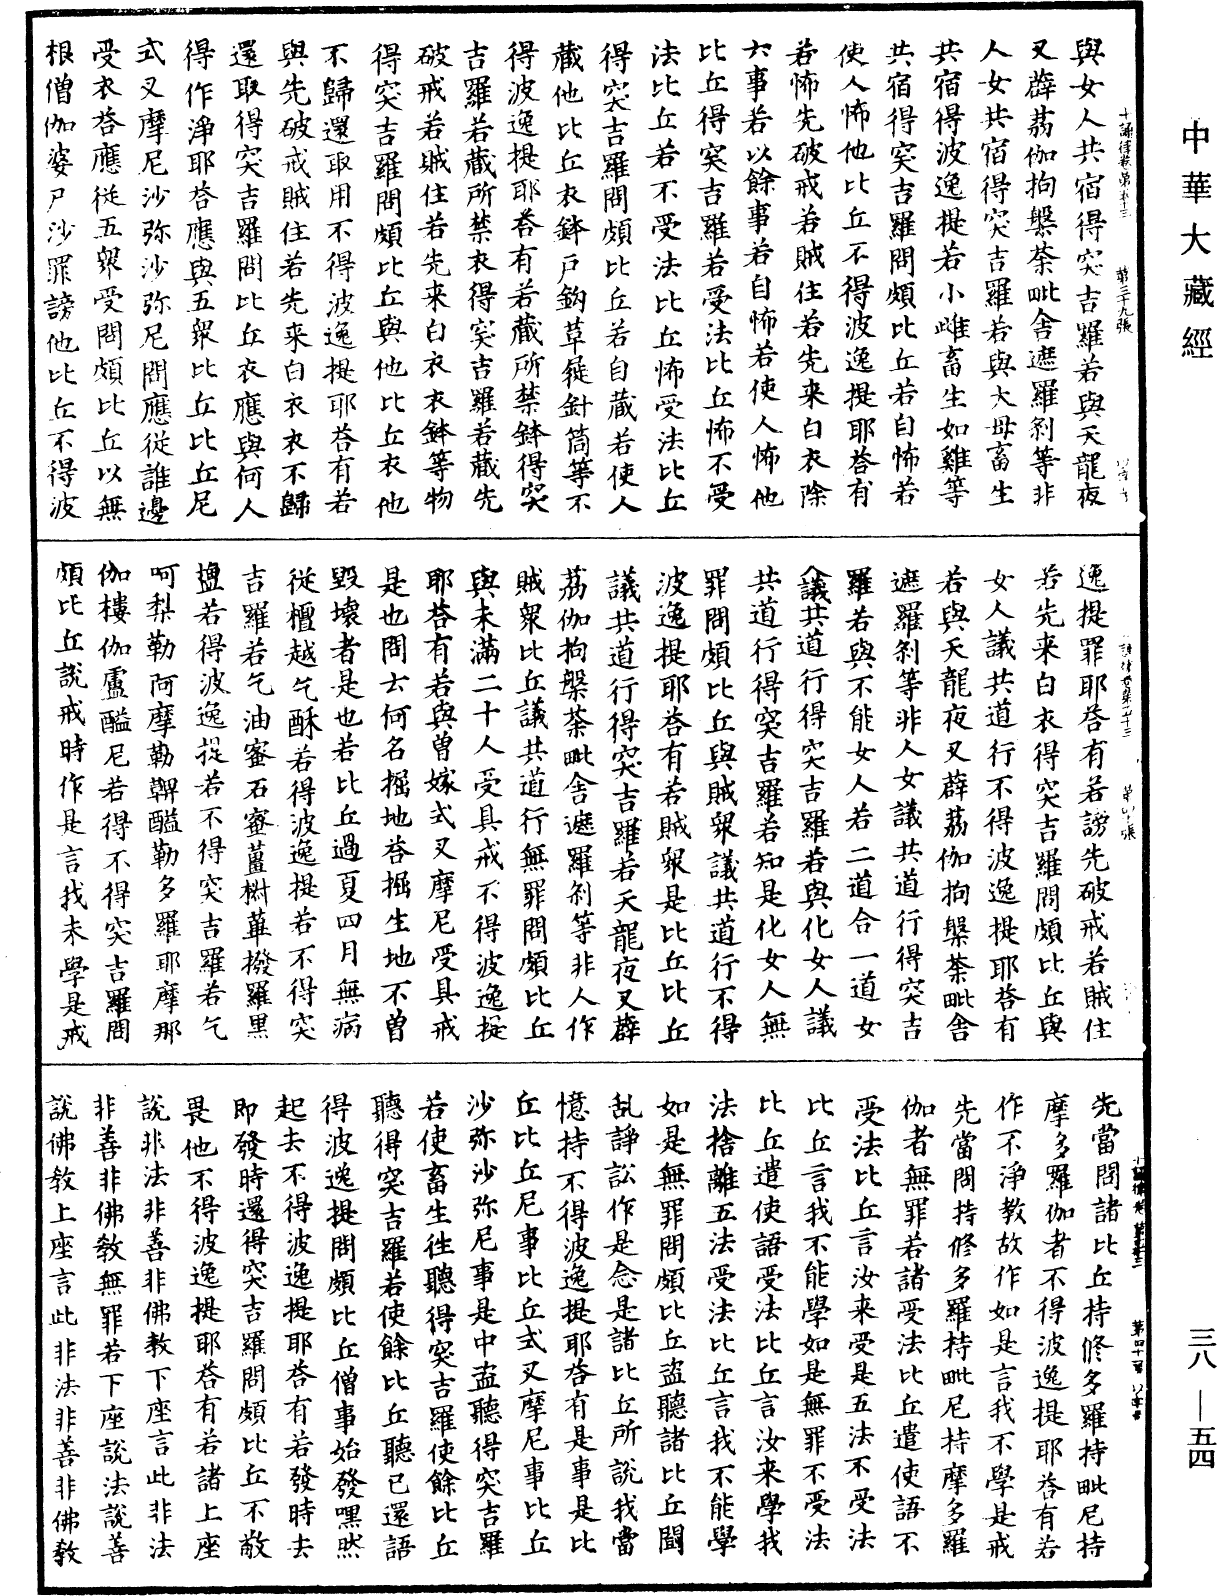 中華大藏經
三八—五四
十誦律卷第五十三 第三十九張
與女人共宿得突吉羅若與天龍夜
叉薜荔伽拘槃荼毗舍遮羅剎等非
人女共宿得突吉羅若與大母畜生
共宿得波逸提若小雌畜生如雞等
共宿得突吉羅問頗比丘若自怖若
使人怖他比丘不得波逸提耶荅有
若怖先破戒若賊住若先来白衣除
六事若以餘事若自怖若使人怖他
比丘得突吉羅若受法比丘怖不受
法比丘若不受法比丘怖受法比丘
得突吉羅問頗比丘若自藏若使人
藏他比丘衣鉢戶鈎草屣針筒等不
得波逸提耶荅有若藏所禁鉢得突
吉羅若藏所禁衣得突吉羅若藏先
破戒若賊住若先来白衣衣鉢等物
得突吉羅問頗比丘與他比丘衣他
不歸還取用不得波逸提耶荅有若
與先破戒賊住若先来白衣衣不歸
還取得突吉羅問比丘衣應與何人
得作淨耶荅應與五眾比丘比丘尼
式叉摩尼沙弥沙弥尼問應從誰邊
受衣荅應從五眾受問頗比丘以無
根僧伽婆尸沙罪謗他比丘不得波
逸提罪耶荅有若謗先破戒若賊住
若先来白衣得突吉羅問頗比丘與
女人議共道行不得波逸提耶荅有
若與天龍夜叉薜荔伽拘槃荼毗舍
遮羅剎等非人女議共道行得突吉
羅若與不能女人若二道合一道女
人議共道行得突吉羅若與化女人議
共道行得突吉羅若知是化女人無
罪問頗比丘與賊眾議共道行不得
波逸提耶荅有若賊眾是比丘比丘
議共道行得突吉羅若天龍夜叉薜
荔伽拘槃荼毗舍遮羅剎等非人作
賊眾比丘議共道行無罪問頗比丘
與未滿二十人受具戒不得波逸提
耶荅有若與曾嫁式叉摩尼受具戒
是也問云何名掘地荅掘生地不曾
毀壞者是也若比丘過夏四月無病
從檀越乞酥若得波逸提若不得突
吉羅若乞油蜜石蜜薑樹蓽撥羅黑
鹽若得波逸提若不得突吉羅若乞
呵梨勒阿摩勒鞞醯勒多羅耶摩那
伽樓伽盧醯尼若得不得突吉羅問
頗比丘說戒時作是言我未學是戒
先當問諸比丘持修多羅持毗尼持
摩多羅伽者不得波逸提耶荅有若
作不淨教故作如是言我不學是戒
先當問持修多羅持毗尼持摩多羅
伽者無罪若諸受法比丘遣使語不
受法比丘言汝来受是五法不受法
比丘言我不能學如是無罪不受法
比丘遣使語受法比丘言汝来學我
法捨離五法受法比丘言我不能學
如是無罪問頗比丘盜聽諸比丘鬪
亂諍訟作是念是諸比丘所說我當
憶持不得波逸提耶荅有是事是比
丘比丘尼事比丘式叉摩尼事比丘
沙弥沙弥尼事是中盜聽得突吉羅
若使畜生往聽得突吉羅使餘比丘
聽得突吉羅若使餘比丘聽已還語
得波逸提問頗比丘僧事始發嘿然
起去不得波逸提耶荅有若發時去
即發時還得突吉羅問頗比丘不敬
畏他不得波逸提耶荅有若諸上座
說非法非善非佛教下座言此非法
非善非佛教無罪若下座說法說善
說佛教上座言此非法非善非佛教